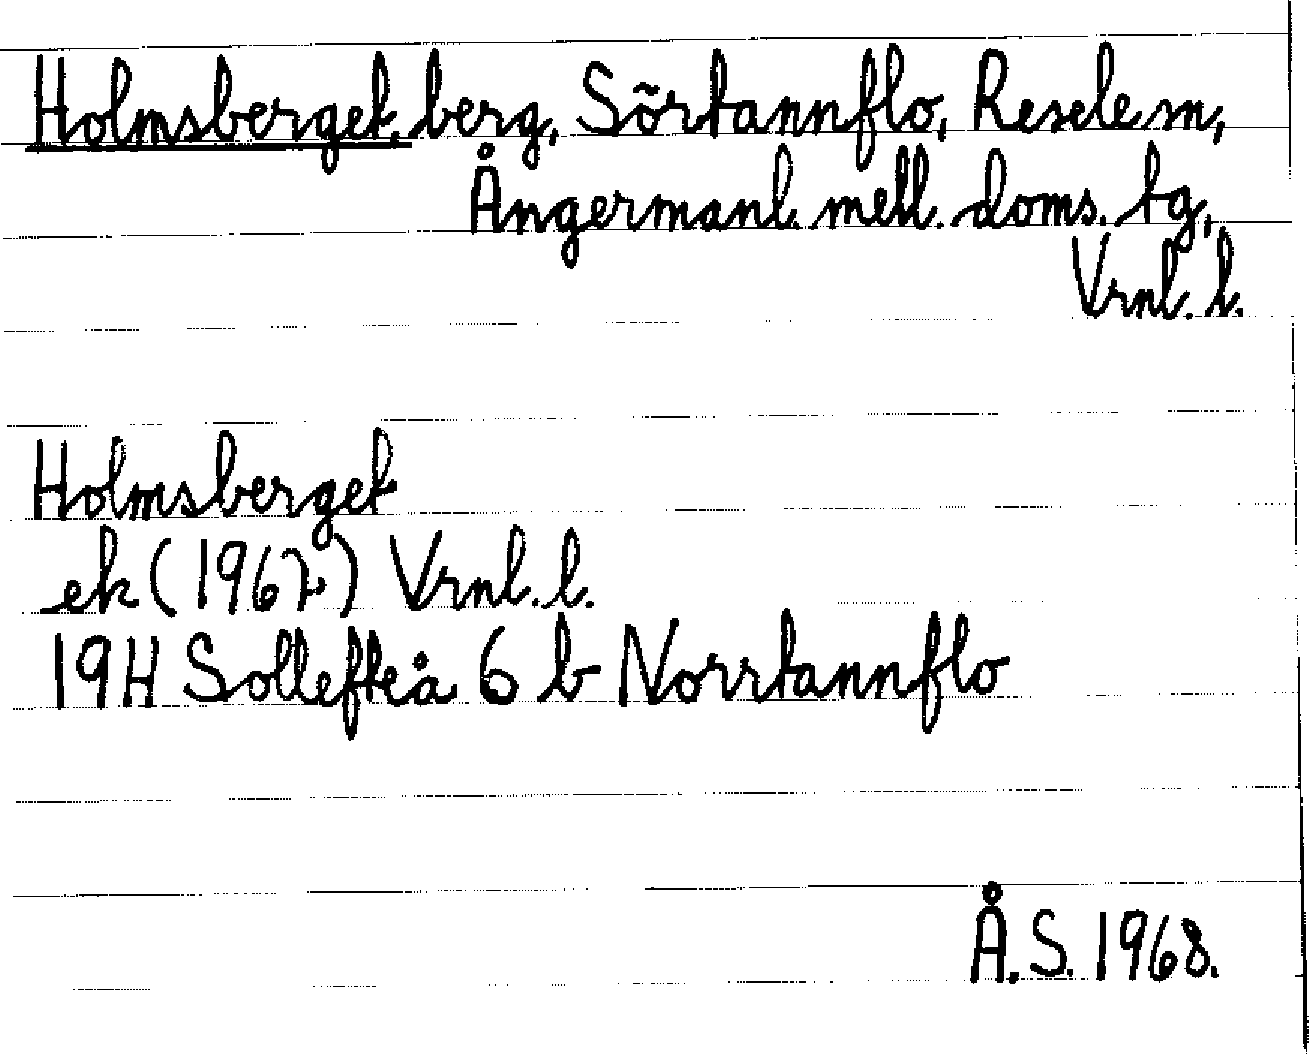 Holmsberget, berg, Sörtannflo, Resele sn,
Ångermanl. mell. doms. tg,
Vrnl. l.
Holmsberget
ek (1967) Vrnl. l.
19H Sollefteå 6 b Norrtannflo
Å.S. 1968.